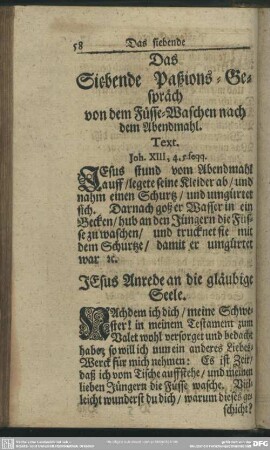 58 Das siebende
Das
Siebende Paßions-Ge-
spräch
von dem Füsse-Waschen nach
dem Abendmahl.
Text.
Joh. XIII, 4. seqq.
JEsus stund vom Abendmahl
auff/ legete seine Kleider ab/ und
nahm einen Schurtz/ und umgürtet
sich. Darnach goß er Wasser in ein
Becken/ hub an den Jüngern die Füs-
se zu waschen/ und trucknet sie mit
dem Schurtze/ damit er umgürtet
war ꝛc.
JEsus Anrede an die gläubige
Seele.
NAchdem ich dich/ meine Schwe-
ster! in meinem Testament zum
Valet wohl versorget und bedacht
habe; so will ich nun ein anderes Liebes-
Werck für mich nehmen: Es ist Zeit/
daß ich vom Tische auffstehe/ und meinen
lieben Jüngern die Füsse wasche. Viel-
leicht wunderst du dich/ warum dieses ge-
schicht?